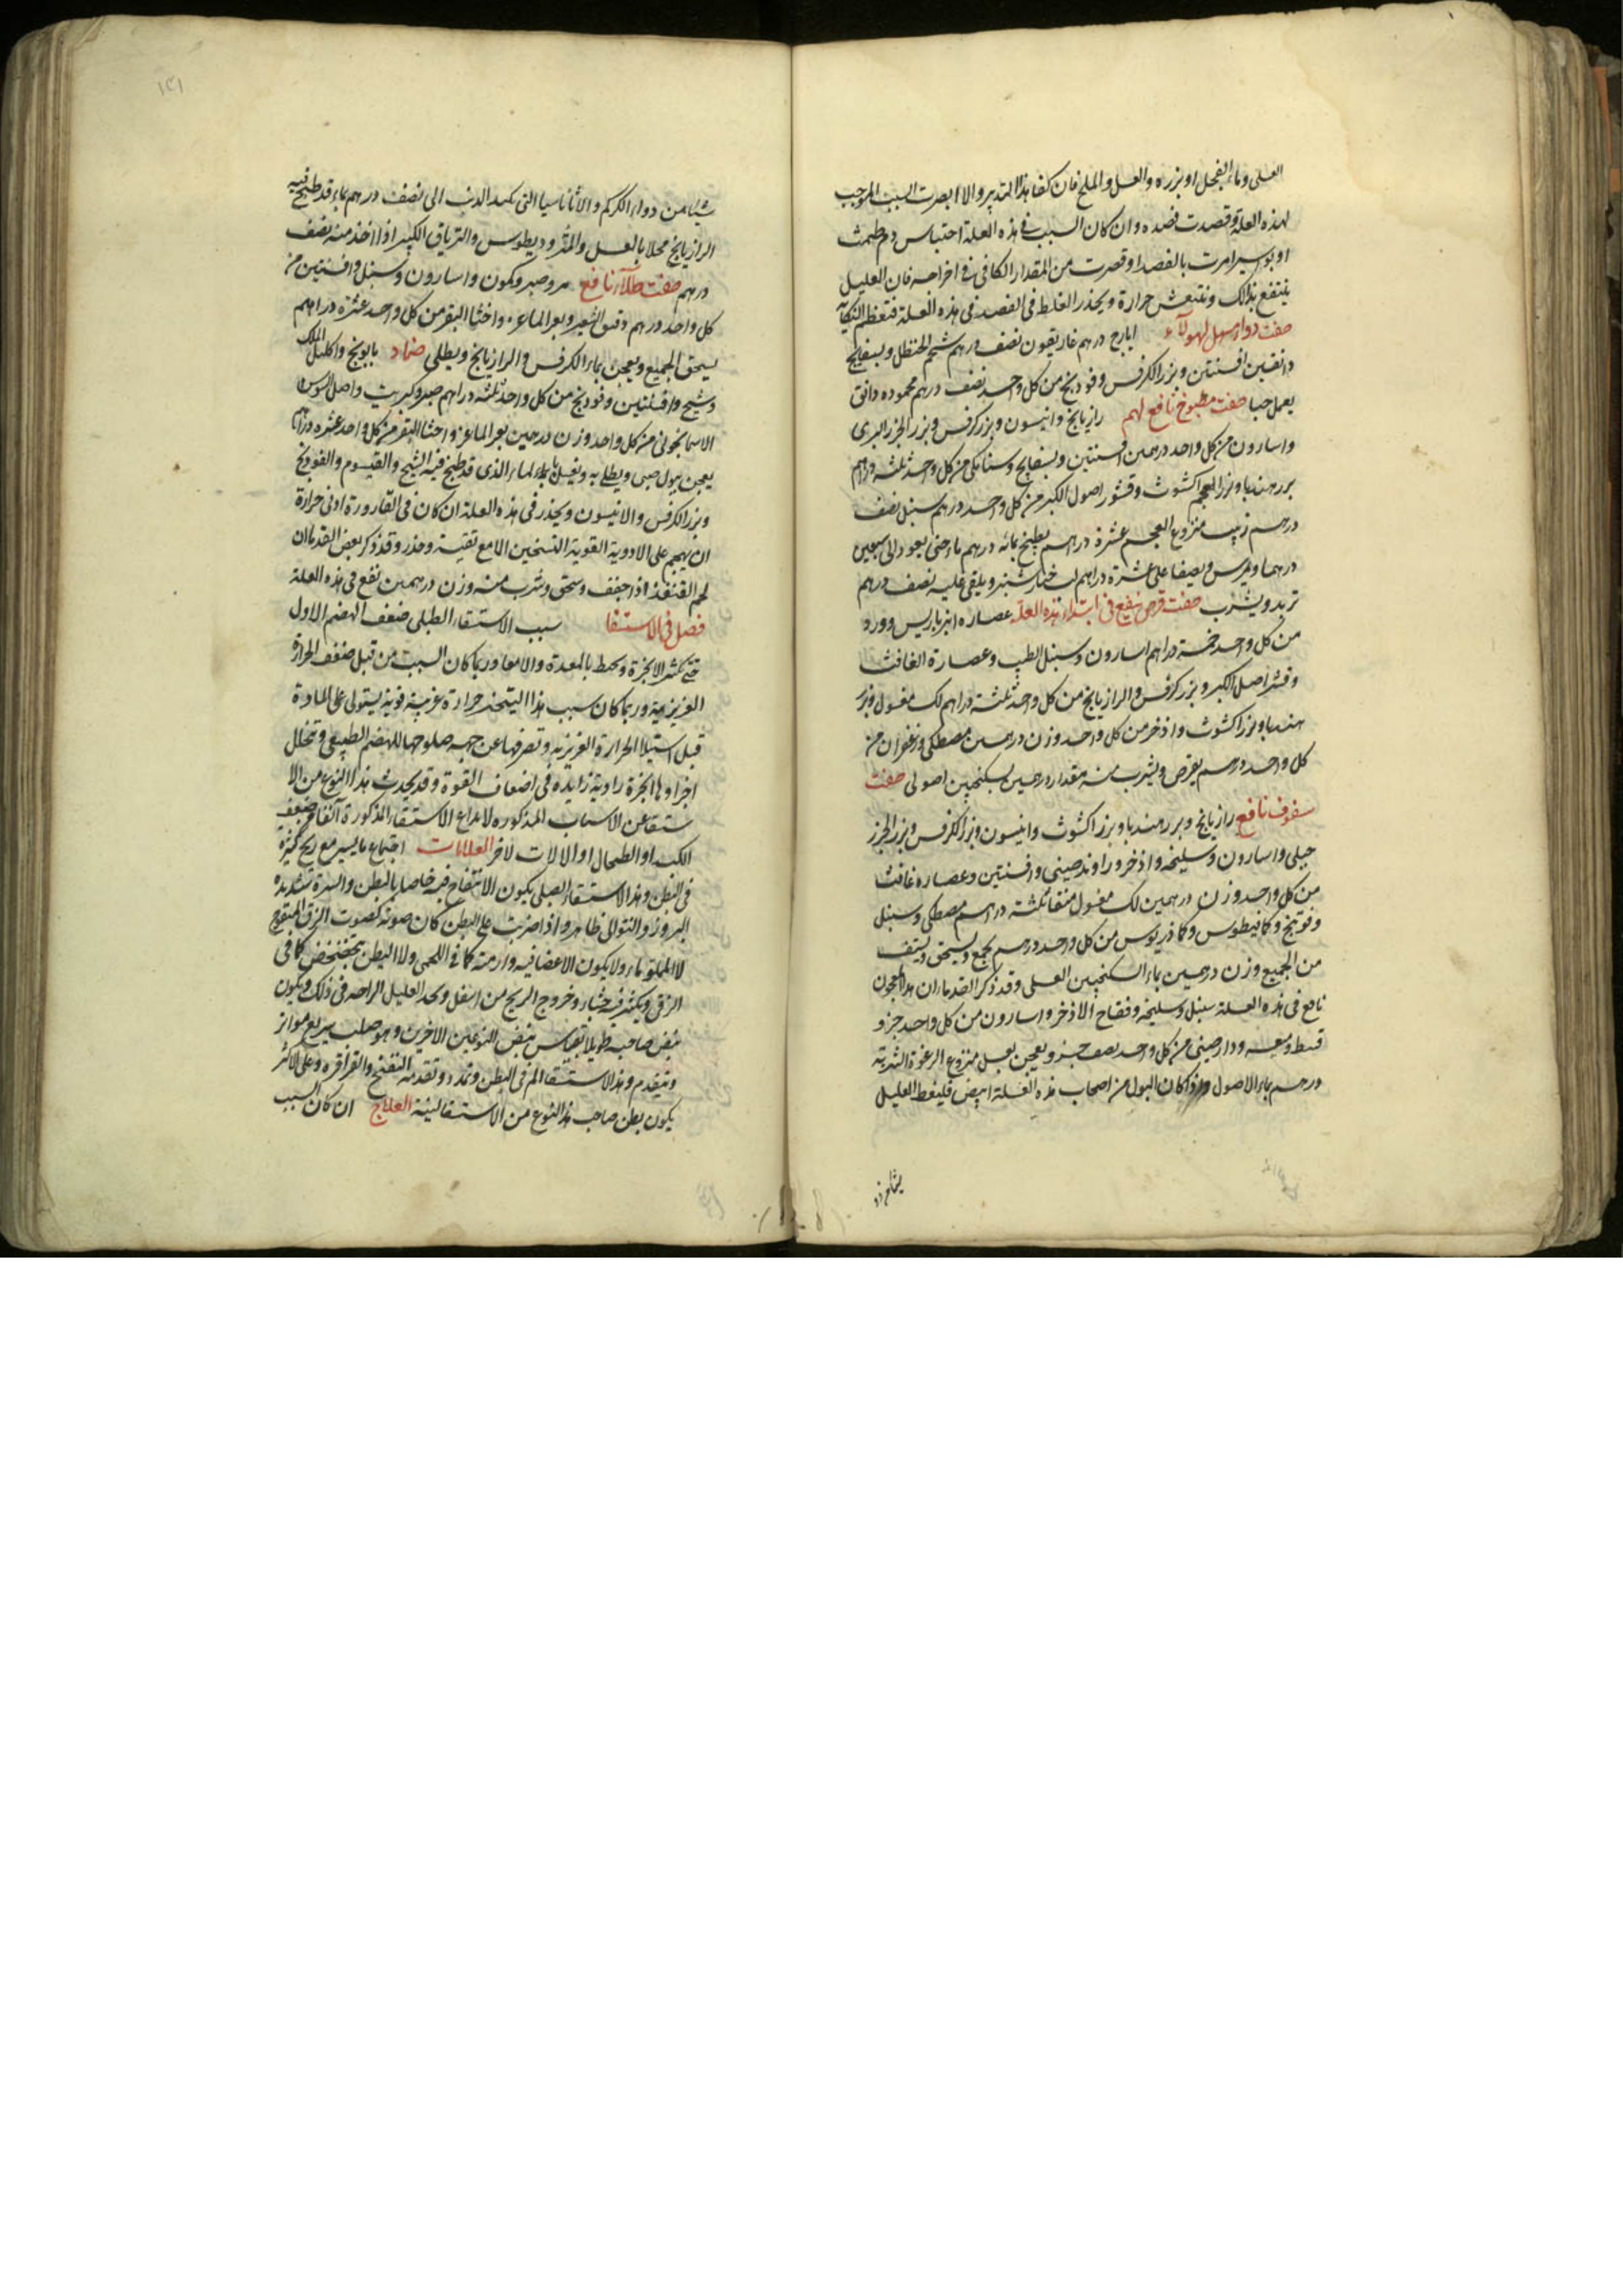 العسلى وماء الفجل او بزره والعسل والملح فان كفا هذا التدبير والا ابصرت السبب الموجب
لهذه العلة وقصدت قصده وان كان السبب فى هذه العلة احتباس دم طمث
او بواسير امرت بالفصد او قصرت من المقدار الكافى فى اخراجه فان العليل
ينتفع بذلك وتنتعش حرارة ويحذر الغلط فى الفصد فى هذه العلة فتعظم النكاية
صفت دواء مسهل لهولآء ايارج درهم غاريقون نصف درهم شحم الحنظل وبسفايج
دانقين افسنتين وبزر الكرفس وفودنج من كل واحد نصف درهم محموده دانق
يعمل حبا صفت مطبوخ نافع لهم رازيانج وانيسون وبزر كرفس وبزر الجزر البرى
واسارون من كل واحد درهمين افسنتين وبسفايج وسنامكى من كل واحد ثلثة دراهم
بزر هندبا وبزر اكشوث وقشور اصول الكبر من كل واحد درهم سنبل نصف
درهم زبيب منزوع العجم عشرة دراهم يطبخ بمائه درهم ماء حتى يعود الى سبعين
درهما ويمرس ويصفا على عشرة دراهم لب خيار شنبر ويلقى عليه نصف درهم
تربد ويشرب صفت قرص ينفع فى ابتداء هذه العلة عصاره انبرباريس وورد
من كل واحد خمسة دراهم اسارون وسنبل الطيب وعصارة الغافث
وقشر اصل الكبر وبزر كرفس والرازيانج من كل واحد ثلثة دراهم لك مغسول وبزر
هندبا وبزر اكشوث واذخر من كل واحد وزن درهمين مصطكى وزعفران من
كل واحد درهم يقرص ويشرب منه مقدار درهمين بسكنجبين اصولى صفت
سفوف نافع رازيانج وبزر هندبا وبزر اكشوث وانيسون وبزر الكرفس وبزر الجزر
جبلى واسارون وسليخه واذخر وراوند صينى وافسنتين وعصاره غافث
من كل واحد وزن درهمين لك مغسول منقا ثلثة دراهم مصطكى وسنبل
وفوتنج وكمافيطوس وكماذريوس من كل واحد درهم يجمع ويسحق ويستف
من الجميع وزن درهمين بماء السكنجبين العسلى وقد ذكر القدماء ان هذا المعجون
نافع فى هذه العلة سنبل وسليخه وفقاح الاذخر واسارون من كل واحد جزو
قسط ومعه ودارصينى من كل واحد نصف جزو ويعجن بعسل منزوع الرغوة الشربة
درهم بماء الاصول واذا كان البول من اصحاب هذه العلة ابيض فليعط العليل
شيئا من دواء الكركم والاثاناسيا التى بكبد الذئب الى نصف درهم بماء قد طبخ فيه
الرازيانج محلا بالعسل والمثروديطوس والترياق الكبير اذا اخذ منه نصف
درهم صفت طلآء نافع مر وصبر وكمون واسارون وسنبل وافسنتين من
كل واحد درهم دقيق الشعير وبعر الماعز واخثا البقر من كل واحد عشرة دراهم
يسحق الجميع ويعجن بماء الكرفس والرازيانج ويطلى ضماد بابونج واكليل الملك
وشيح وافسنتين وفودنج من كل واحد ثلثه دراهم صبر وكبريت واصل السوسن
الاسمانجونى من كل واحد وزن درهمين بعر الماعز واخثا البقر من كل واحد عشره دراهم
يعجن ببول صبى ويطلى به ويغسل بالماء الذى قد طبخ فيه الشيح والقيسوم والفودنج
وبزر الكرفس والانيسون ويحذر فى هذه العلة ان كان فى القارورة ادنى حرارة
ان يهجم على الادوية القوية التسخين الا مع تقية وحذر وقد ذكر بعض القدما ان
لحم القنفذ اذا جفف وسحق وشرب منه وزن درهمين نفع فى هذه العلة
فصل فى الاستسقا سبب الاستسقاء الطبلى ضعف الهضم الاول
حتى تكثر الابخرة ويحيط بالمعدة والامعا وربما كان السبب من قبل ضعف الحرارة
الغريزية وربما كان سبب هذا التبخير حرارة غريبة قوية يستولى على المادة
قبل استيلا الحرارة الغريزيه وتصرفها عن جهه صلوحها للهضم الطبيعى وتحلل
اجزاوها ابخرة رادية زايده فى اضعاف القوة وقد يحدث هذا النوع من الا
ستسقا عن الاسباب المذكوره لانواع الاستسقاء المذكورة آنفا من ضعف
الكبد او الطحال او الالات لاخر العلامات اجتماع ما يسير مع ريح كثيرة
فى البطن وهذا الاستسقاء الطبلى يكون الانتفاخ فيه خاصا بالبطن والسرة شديده
البروز والنتو الى ظاهر واذا ضربت على البطن كان صوته كصوت الزق المنفوخ
لا المملو ماء ولا يكون الاعضا فيه وارمة كما فى اللحمى ولا البطن يتخضخض كما فى
الزقى ويكثر فيه جشاء وخروج الريح من اسفل ويجد العليل الراحه فى ذلك ويكون
نبض صاحبه طويلا بقياس نبض النوعين الاخرين وهو صلب سريع متواتر
ويتقدم وهذا الاستسقا الم فى البطن وتمدد وتقدمه النفخ والقراقره وعلى الاكثر
يكون بطن صاحب هذا النوع من الاستسقا لينة العلاج ان كان السبب